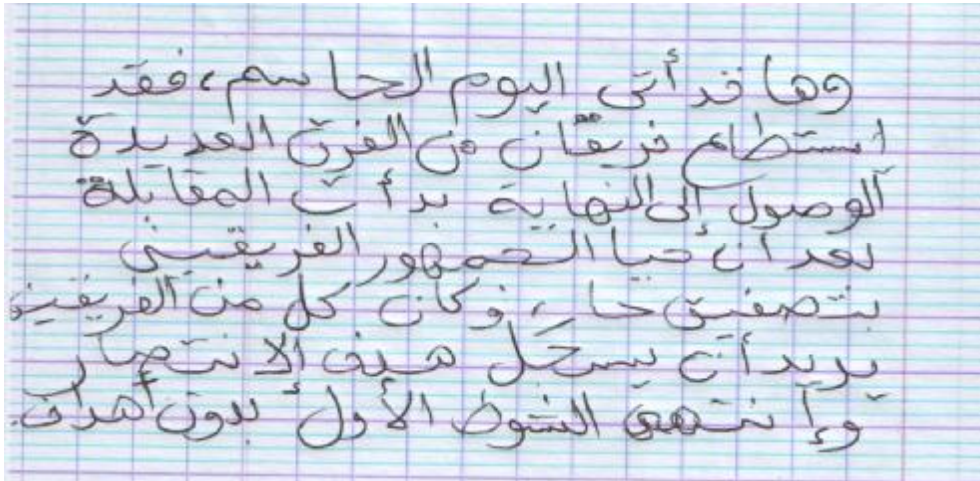 وها قد أتى اليوم الحاسم، فقد
استطاع فريقان من الفرق العديدة
الوصول إلى النهاية بدأت المقابلة
بعد أن حيا الجمهور الفريقين
بتصفيق حار، وكان كل من الفريقين
يريد أن يسجل هدف الانتصار
وإنتهى الشوط الأول بدون أهداف.